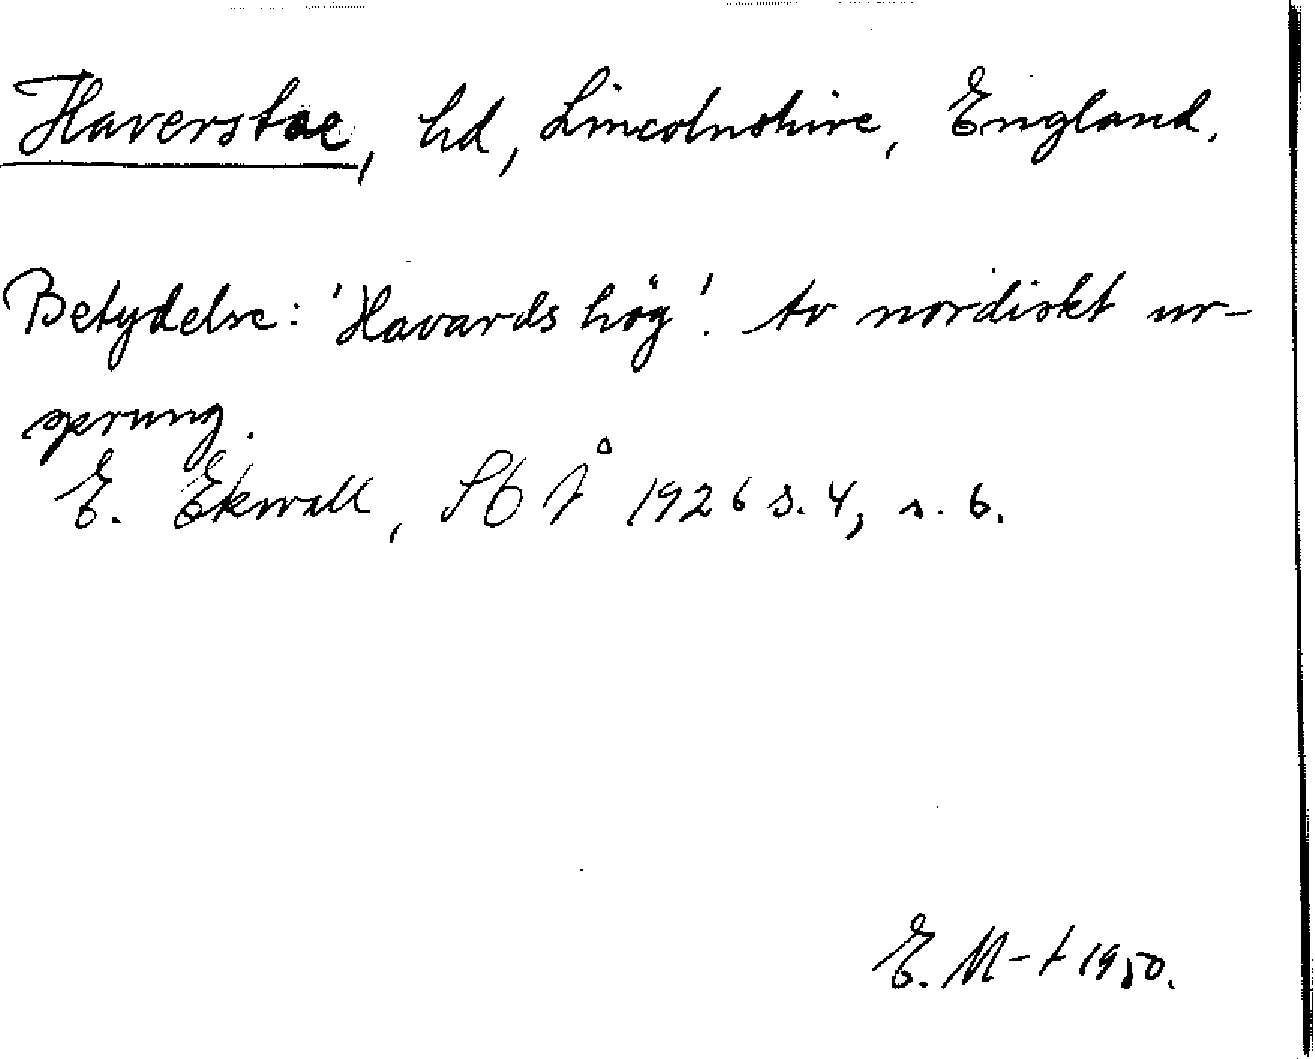 Haverstoe, hd, Lincolnshire, England.
Betydelse: 'Havards hög'. Av nordiskt ur-
sprung.
E. Ekwall, SOÅ 1926 s. 4, s. 6.
E. M-t 1950.